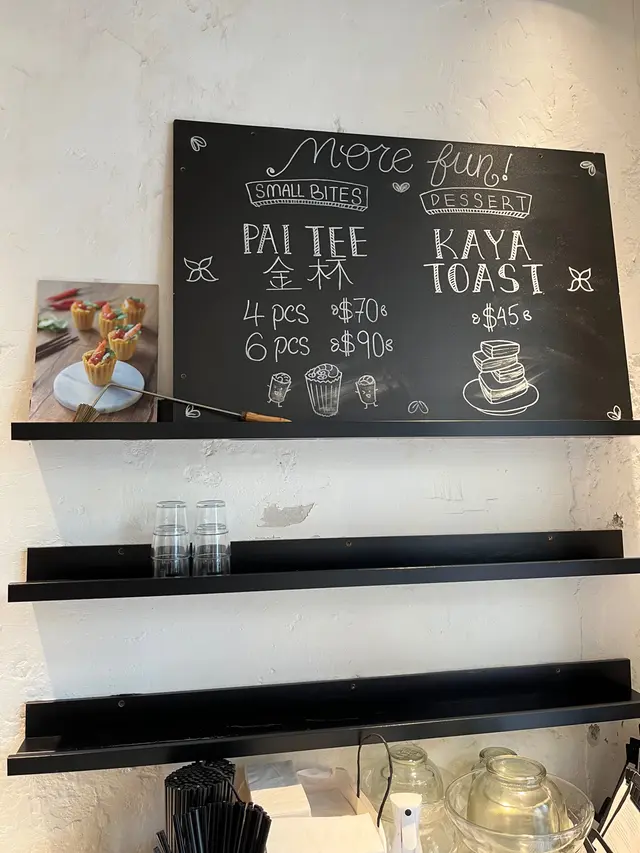 More fun!
SMALL BITES
PAI TEE
金杯
4 pcs $70
6 pcs $90
DESSERT
KAYA
TOAST
$45